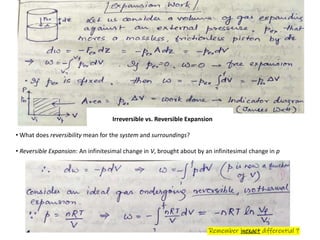 Expansion Work
Let us consider a volume of gas expanding
against an external pressure, pex that
moves a massless, frictionless piston by dz
dω = -Fex dz = -pex Adz = -pexdV
→ ω = -∫ pexdV. If pex=0, ω=0 → free expansion
• If pex is fixed, then ω = -pex∫dV = -pex ΔV
Area = pex ΔV = work done → Indicator diagram
(James Watt)
pex
dz
P
Pex
V1
V2
V
Irreversible vs. Reversible Expansion
• What does reversibility mean for the system and surroundings?
• Reversible Expansion: An infinitesimal change in V, brought about by an infinitesimal change in p
∴ dω = -pdV ⇒ ω = -∫pdV (p is now a function
of V)
Consider an ideal gas undergoing reversible, isothermal
expansion.
∴ p = nRT/V ⇒ ω = -∫nRT dV/V = -nRT ln Vf/Vi
Remember inexact differential ?